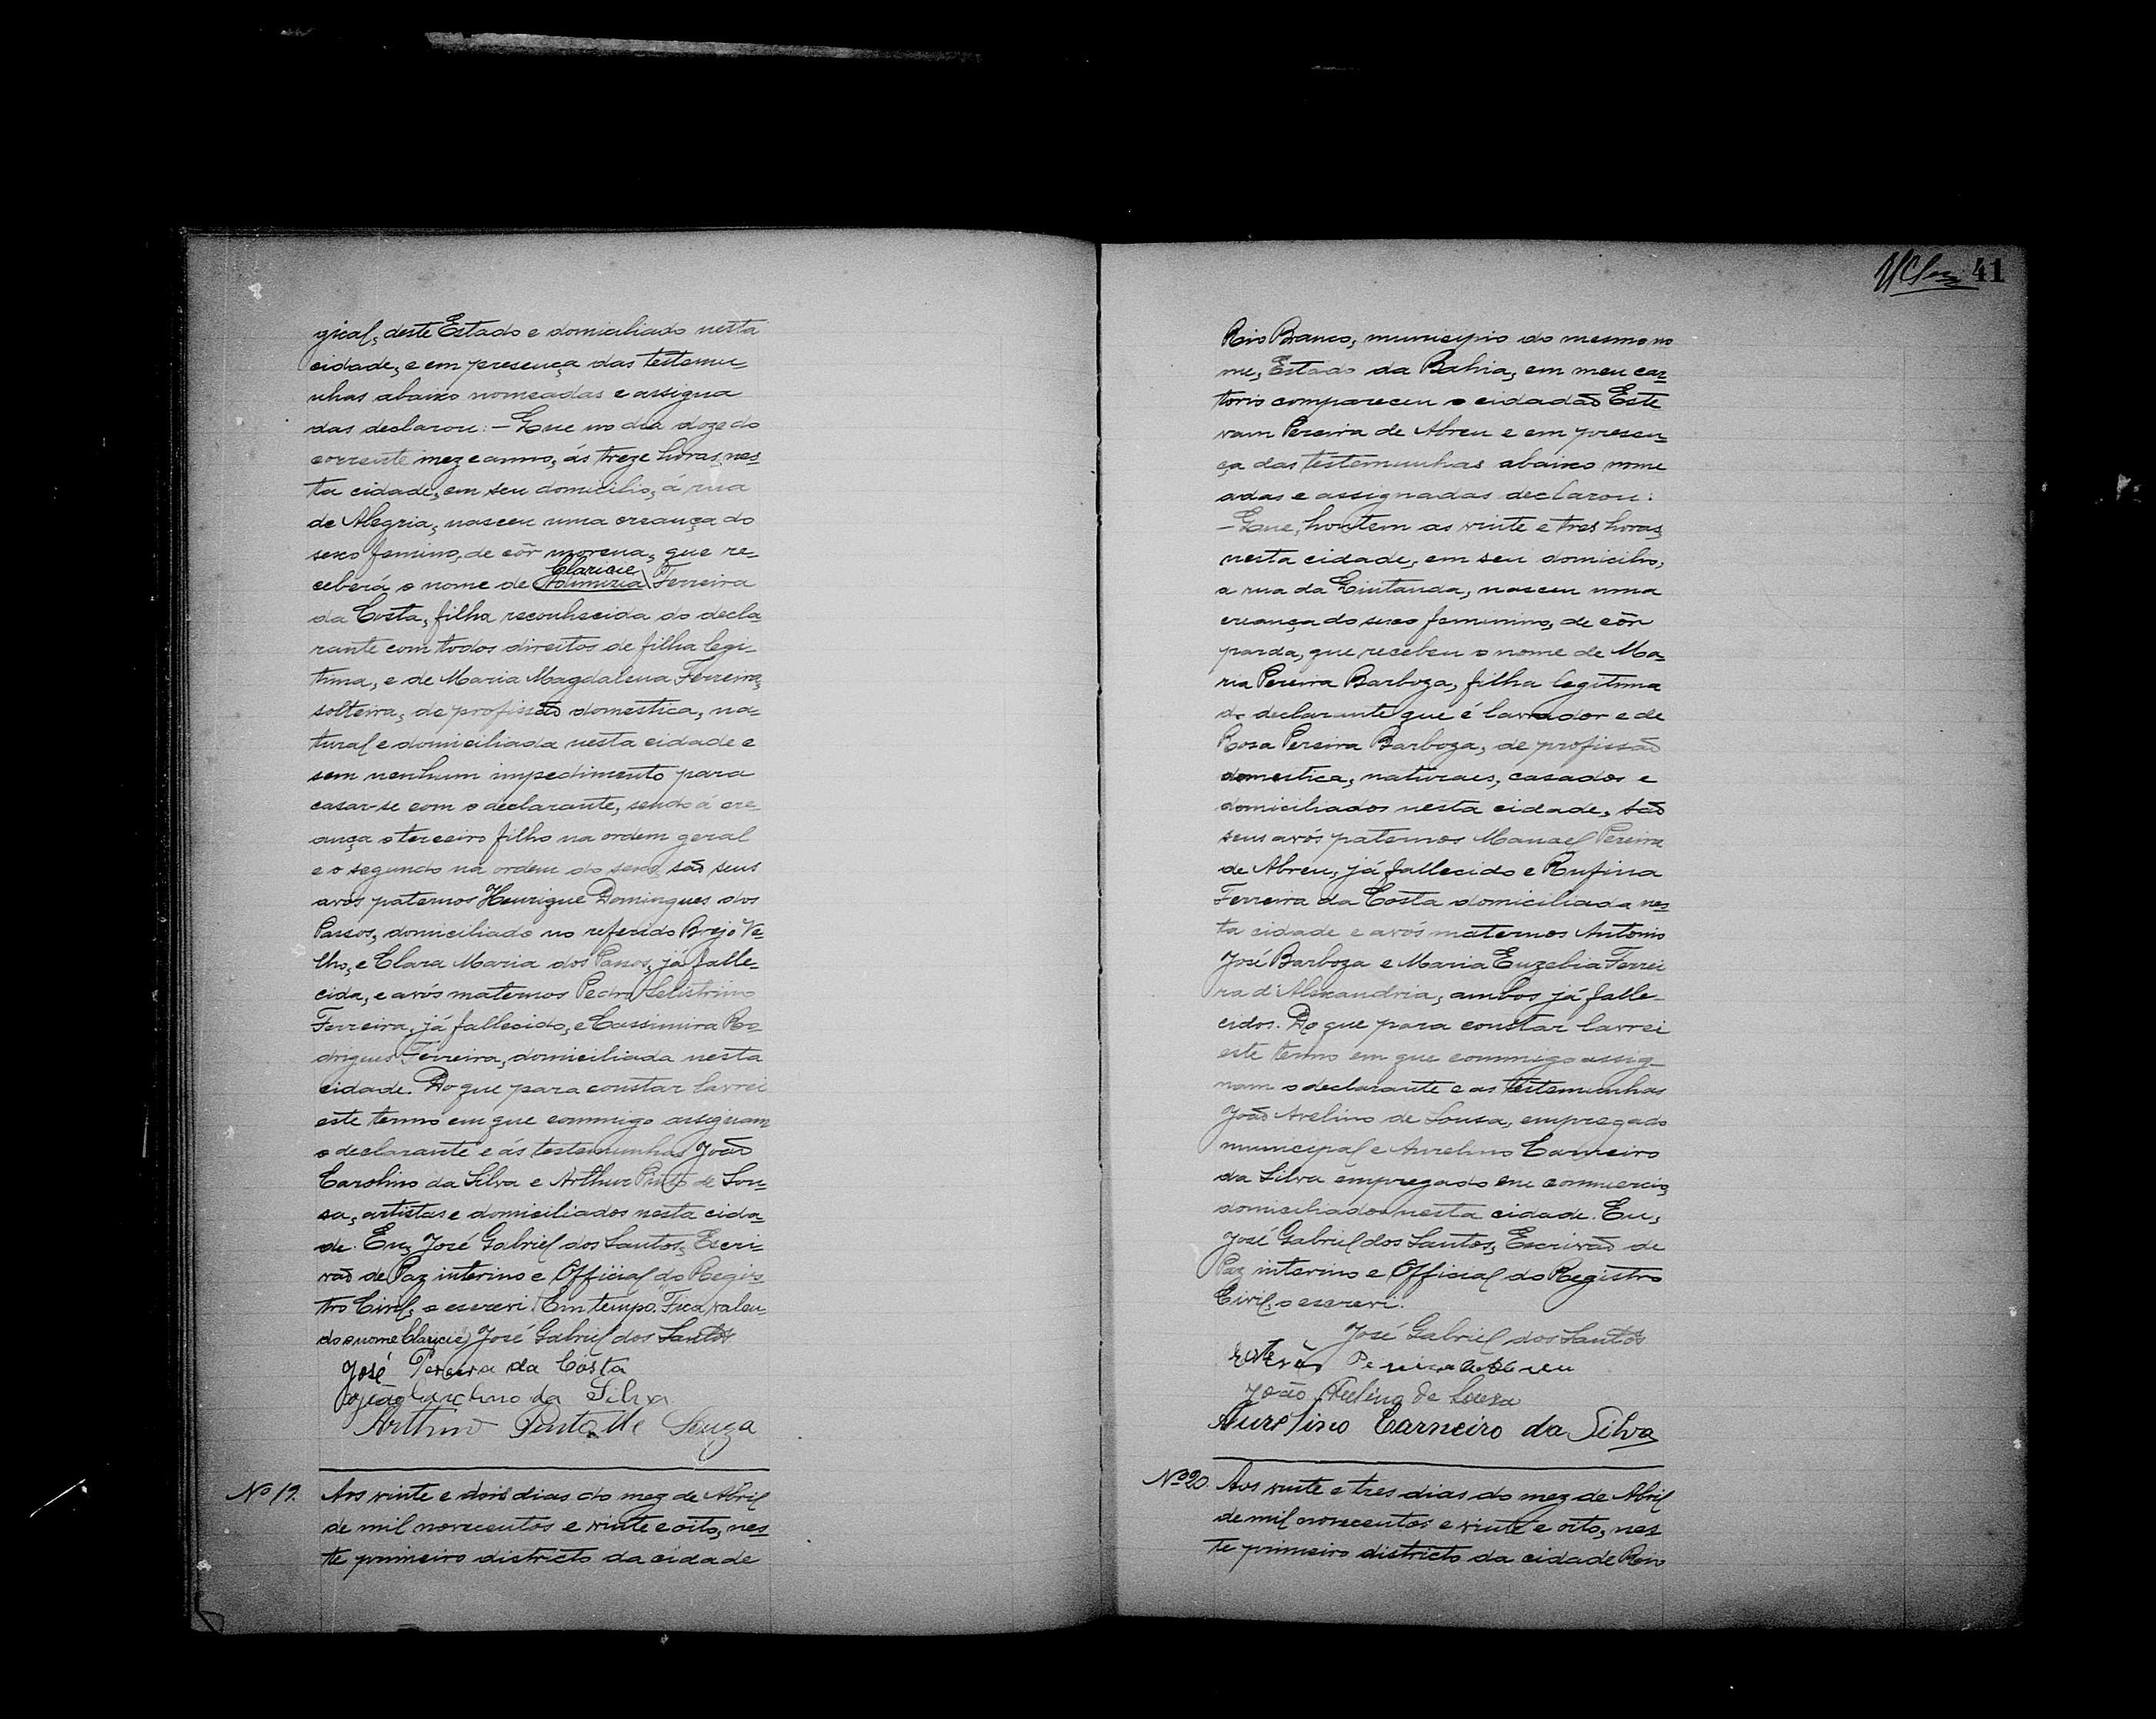 gical, deste Estado e domiciliado nesta
cidade, e em presença das testemu-
nhas abaixo nomeadas e assigna
das declarou: - Que no dia doze do
corrente mez e anno, ás treze horas, nes-
ta cidade, em seu domicilio, á rua
de Alegria, nasceu uma creança do
sexo femino, de côr morena, que re-
Claricie
ceberá o nome de Ferreira
da Costa, filha reconhecida do decla-
rante com todos direitos de filha legi-
tima, e de Maria Magdalena Ferreira,
solteira, de profissão domestica, na-
tural e domiciliada nesta cidade e
sem nenhum impedimento para
casar-se com o declarante, sendo á cre
ança o terceiro filho na ordem geral
e o segundo na ordem do sexo, são seus
avós paternos Henrique Domingues dos
Passos, domiciliado no referido Brejo Ve-
lho, e Clara Maria dos Passos, já falle-
cida, e avós maternos Pedro
Ferreira, já fallecido, e Cassimira Ro-
drigues Ferreira, domiciliada nesta
cidade. Do que para constar lavrei
este termo em que commigo assignam
o declarante e ás testemunhas João
Carolino da Silva e Arthur Pinto de Sou-
sa, artistas e domiciliados nesta cida-
de. Eu, José Gabriel dos Santos, Escri-
vão de Paz interino e Official do Regis-
tro Civil, o escrevi. (Em tempo. Fica valen-
do o nome Claricie) José Gabriel dos Santos
José Pereira da Costa
João Carolino da Silva
Arthur Pinto de Souza
No 19. Aos vinte e dois dias do mez de Abril
de mil novecentos e vinte e oito, nes-
te primeiro districto da cidade
41
Rio Branco, municipio do mesmo no
me, Estado da Bahia, em meu car-
torio compareceu o cidadão Este
vam Pereira de Abreu e em presen-
ça das testemunhas abaixo nome
adas e assignadas declarou:
- Que, hontem as vinte e tres horas,
nesta cidade, em seu domicilio,
a rua da Quitanda, nasceu uma
creança do sexo feminino, de côr
parda, que recebeu o nome de Ma-
ria Pereira Barboza, filha legitima
do declarante que é lavrador e de
Rosa Pereira Barboza, de profissão
domestica, naturaes, casados e
domiciliados nesta cidade, são
seus avós paternos Manoel Pereira
de Abreu, já fallecido e Rufina
Ferreira da Costa domiciliada nes-
ta cidade e avós maternos Antonio
José Barboza e Maria Euzebia Ferrei
ra d'Alexandria, ambos já falle-
cidos. Do que para constar lavrei
este termo em que commigo assig-
nam o declarante e as testemunhas
João Avelino de Sousa, empregado
municipal e Aurelino Carneiro
da Silva empregado em commercio,
domiciliados nesta cidade. Eu,
José Gabriel dos Santos, Escrivão de
Paz interino e Official do Registro
Civil, o escrevi.
José Gabriel dos Santos
Estevão Pereira de Abreu
João Avelino de Souza
Aurelino Carneiro da Silva
No 20. Aos vinte e tres dias do mez de Abril
de mil novecentos e vinte e oito, nes-
te primeiro districto da cidade Rio